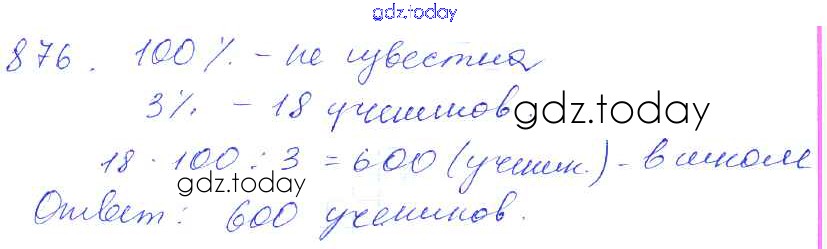 gdz.today
876. 100% - не известна
3% - 18 учеников. gdz.today
18 · 100 : 3 = 600 (ученик.) - в школе
gdz.today
Ответ: 600 учеников.